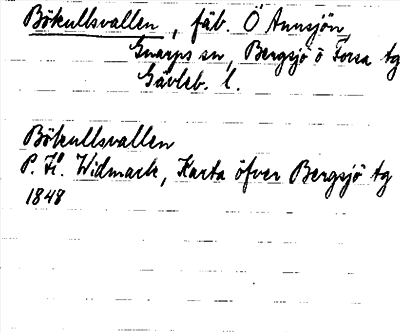 Bökullsvallen, fäb. Ö Annsjön,
Gnarps sn, Bergsjö o Forsa tg
Gävleb. l.
Bökullsvallen
P. H. Widmark, Karta öfver Bergsjö tg
1848